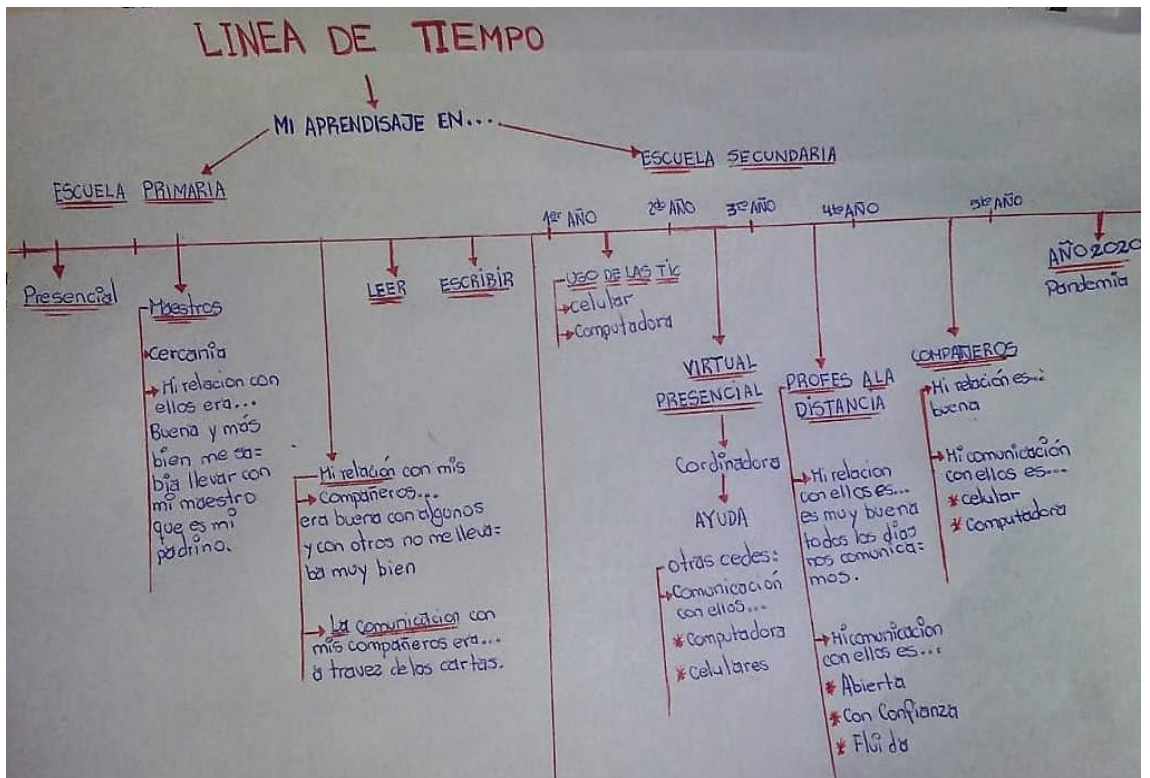 LINEA DE TIEMPO
MI APRENDISAJE EN...
ESCUELA PRIMARIA
Presencial
Maestros
Cercania
Mi relacion con
ellos era...
Buena y más
bien me sa=
bia llevar con
mi maestro
que es mi
padrino.
Mi relación con mis
compañeros...
era buena con algunos
y con otros no me lleva=
ba muy bien
La comunicacion con
mis compañeros era...
a travez de las cartas.
LEER
ESCRIBIR
ESCUELA SECUNDARIA
1er AÑO
2do AÑO
3ro AÑO
4to AÑO
5to AÑO
USO DE LAS TIC
celular
Computadora
VIRTUAL
PRESENCIAL
Cordinadora
AYUDA
otras cedes:
Comunicación
con ellos...
* Computadora
* Celulares
PROFES ALA
DISTANCIA
Mi relacion
con ellos es...
es muy buena
todos los dias
nos comunica=
mos.
Mi comunicacion
con ellos es...
* Abierta
* Con Confianza
* Fluida
COMPAÑEROS
Mi relación es...
buena
Mi comunicación
con ellos es...
* celular
* Computadora
AÑO 2020
Pandemia